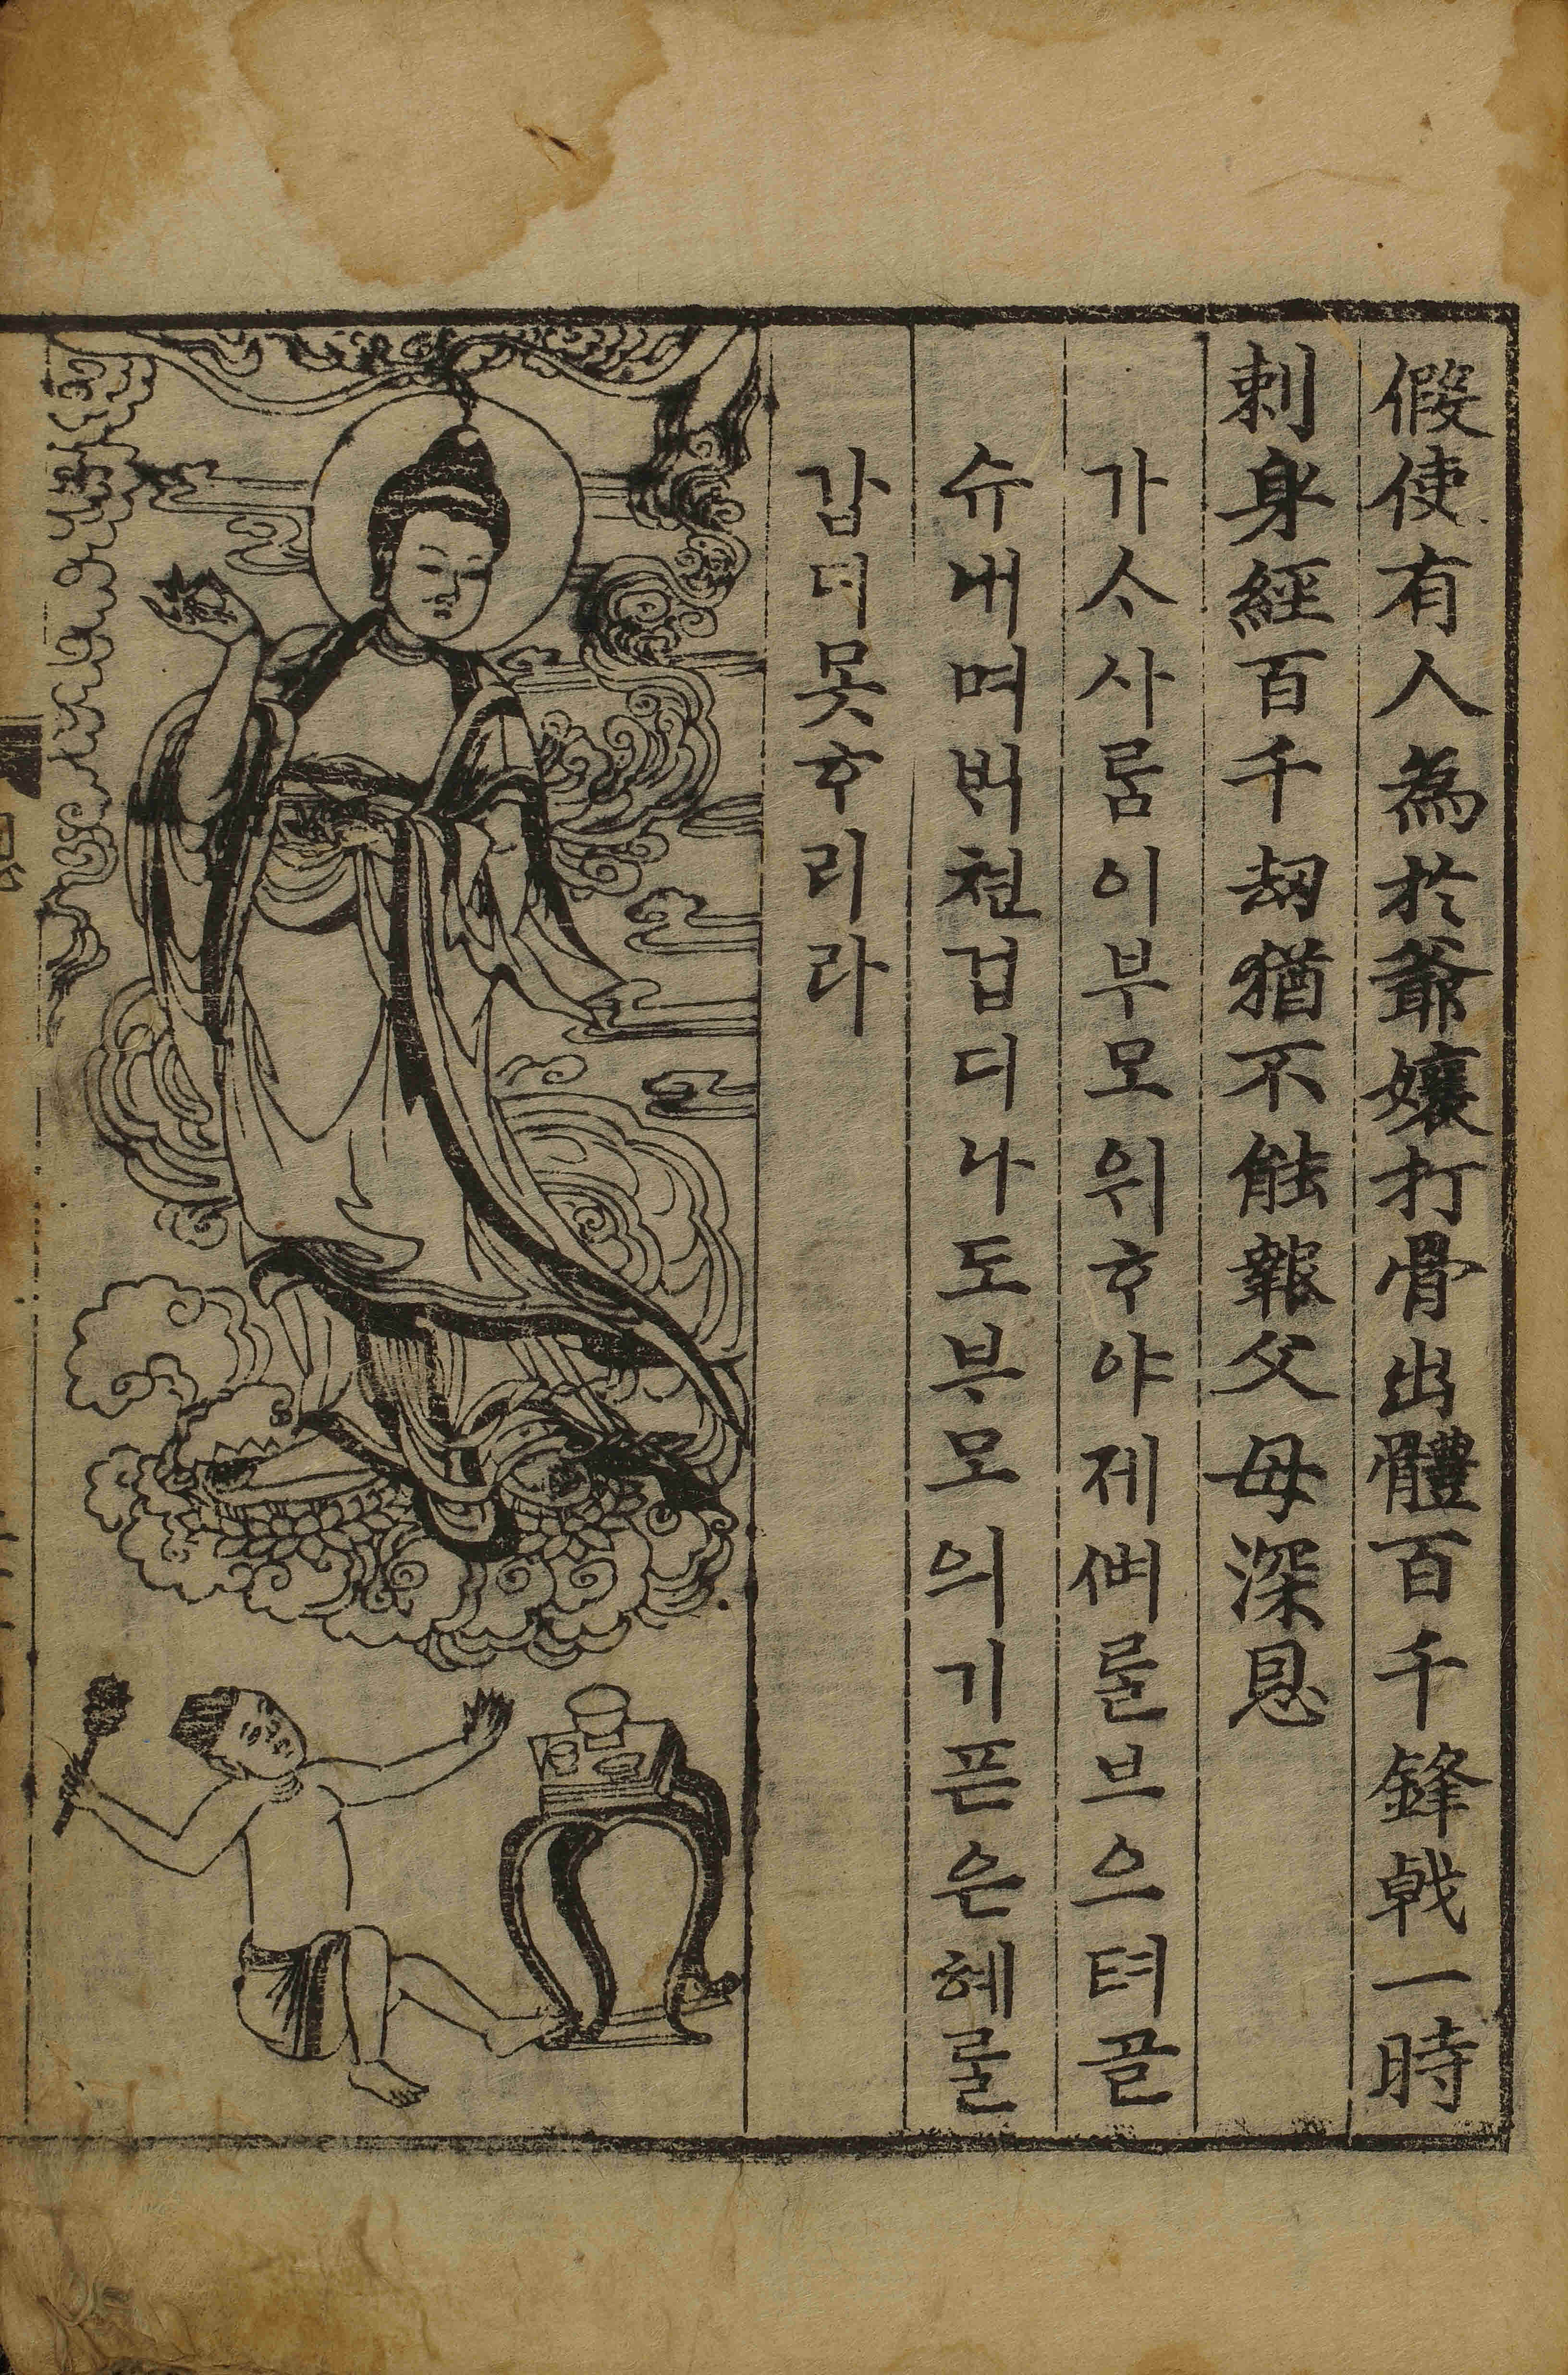 假使有人為於爺孃打骨出體百千鋒戟一時
刺身經百千劫猶不能報父母深恩
가ᄉᆞ사ᄅᆞᆷ이부모위ᄒᆞ야제ᄲᅧᄅᆞᆯ브으텨골
슈내며ᄇᆡ쳔겁디나도부모의기픈은혜ᄅᆞᆯ
갑디못ᄒᆞ리라